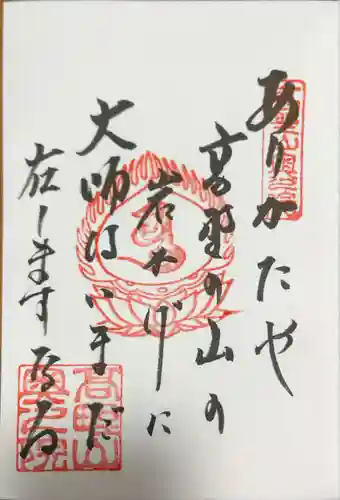 ありがたや
高野の山の
岩かげに
大師はいまだ
在しますなる
高野山
奥之院